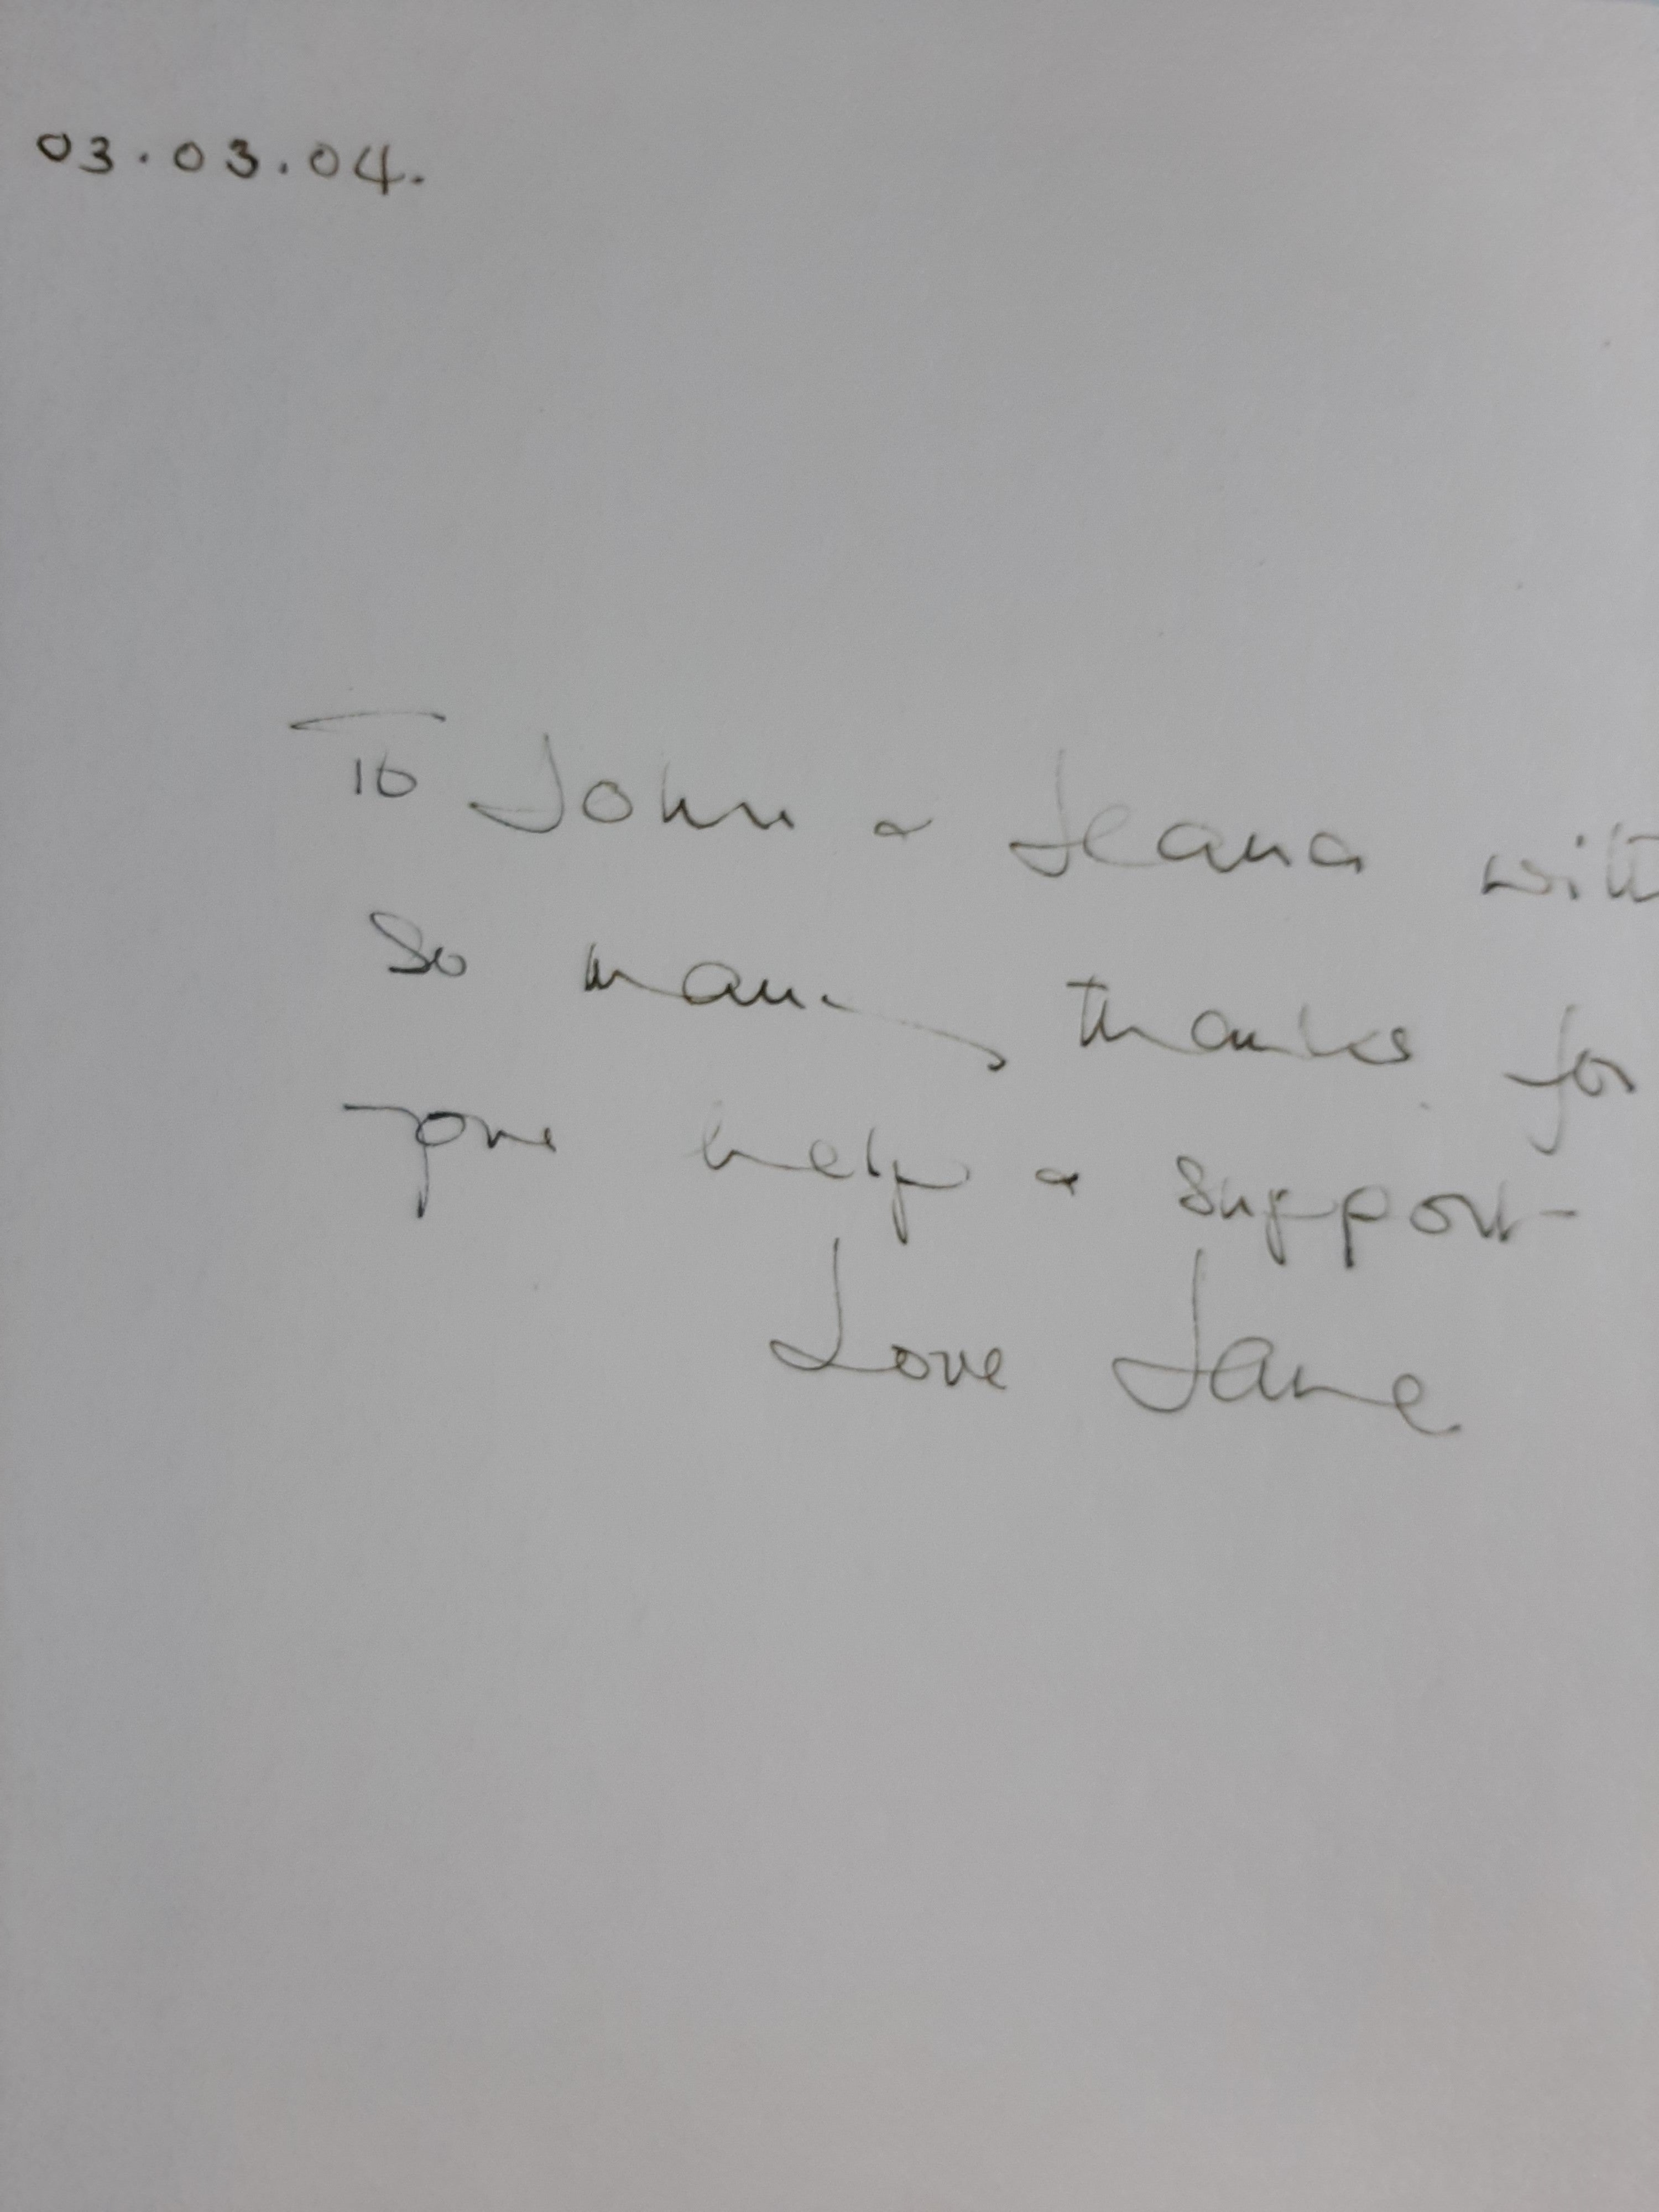 03.03.04.
To John & Jeana with
So many thanks for
your help & support
Love Jane